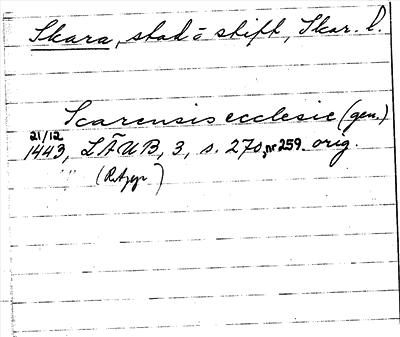 Skara, stad o stift, Skar. l.
Scarensis ecclesie (gen.)
21/12
1443, LÄUB, 3, s. 270, nr 259. orig.
" (RApgr)